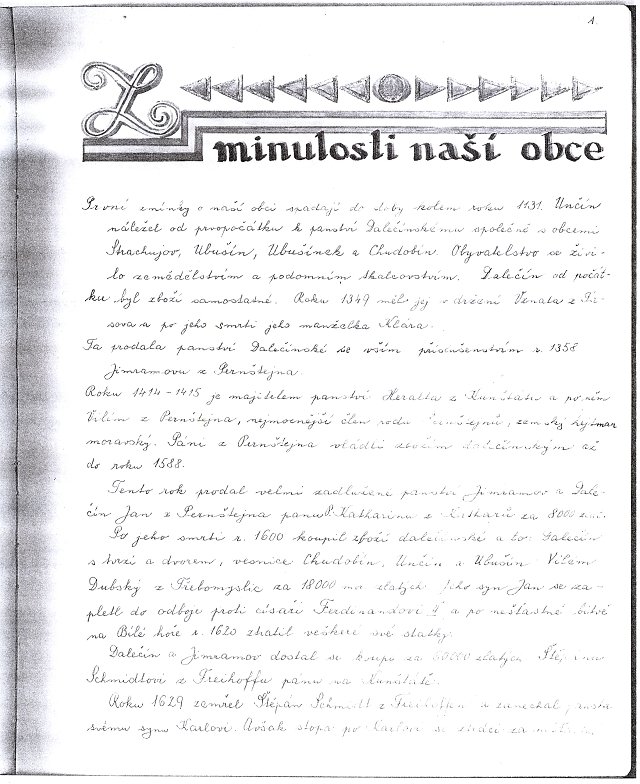 1.
Z minulosti naší obce
První zmínky o naší obci spadají do doby kolem roku 1131. Unčín
náležel od prvopočátku k panství Dalečínskému společně s obcemi
Strachujov, Ubušín, Ubušínek a Chudobín. Obyvatelstvo se živi-
lo zemědělstvím a podomním tkalcovstvím. Dalečín od počát-
ku byl zboží samostatné. Roku 1349 měl jej v držení Vznata z Tři-
sova a po jeho smrti jeho manželka Klára.
Ta prodala panství Dalečínské se vším příslušenstvím r. 1358
Jimramovu z Pernštejna.
Roku 1414-1415 je majitelem panství Heralta z Kunštatu a po něm
Vilém z Pernštejna, nejmocnější člen rodu Pernštejnů, zemský hejtman
moravský. Páni z Pernštejna vládli zbožím dalečínským až
do roku 1588.
Tento rok prodal velmi zadlužené panství Jimramov a Dale-
čín Jan z Pernštejna panu P. Katharinu z Katharů za 8000
Po jeho smrti r. 1600 koupil zboží dalečínské a to: Dalečín
s tvrzí a dvorem, vesnice Chudobín, Unčín a Ubušín Vilém
Dubský z Třebomyslic za 18000 mor. zlatých. Jeho syn Jan se za-
pletl do odboje proti císaři Ferdinandovi II. a po nešťastné bitvě
na Bílé hoře r. 1620 ztratil veškeré své statky.
Dalečín a Jimramov dostal se koupí za 60000 zlatých Štěpánu
Schmidtovi z Freihoffu pánu na Kunštátě.
Roku 1629 zemřel Štěpán Schmidt z Freihoffen a zanechal
svému synu Karlovi. Avšak stopa po Karlovi se ztrácí za